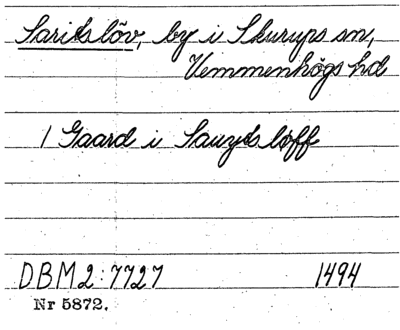 Saritslöv, by i Skurups sn,
Vemmenhögs hd
1 Gaard i Sauytsløff
DBM 2:7727 1494
Nr 5872.